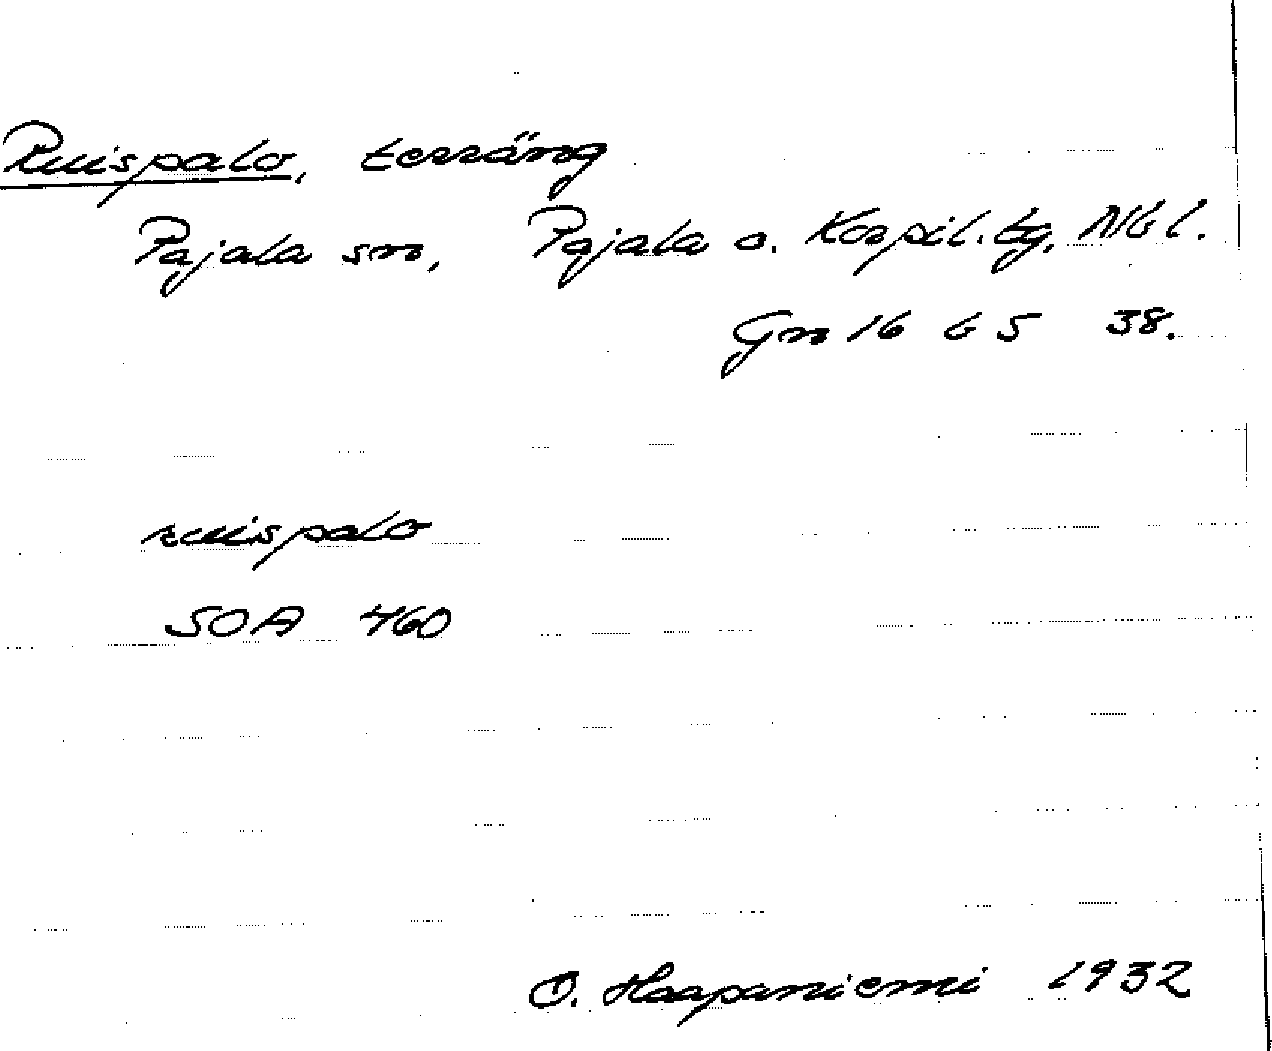 Ruispalo, terräng
Pajala sn, Pajala o. Korpil. tg, Nb l.
Gn 16 b 5 38.
ruispalo
SOA 460
O. Haapaniemi 1932